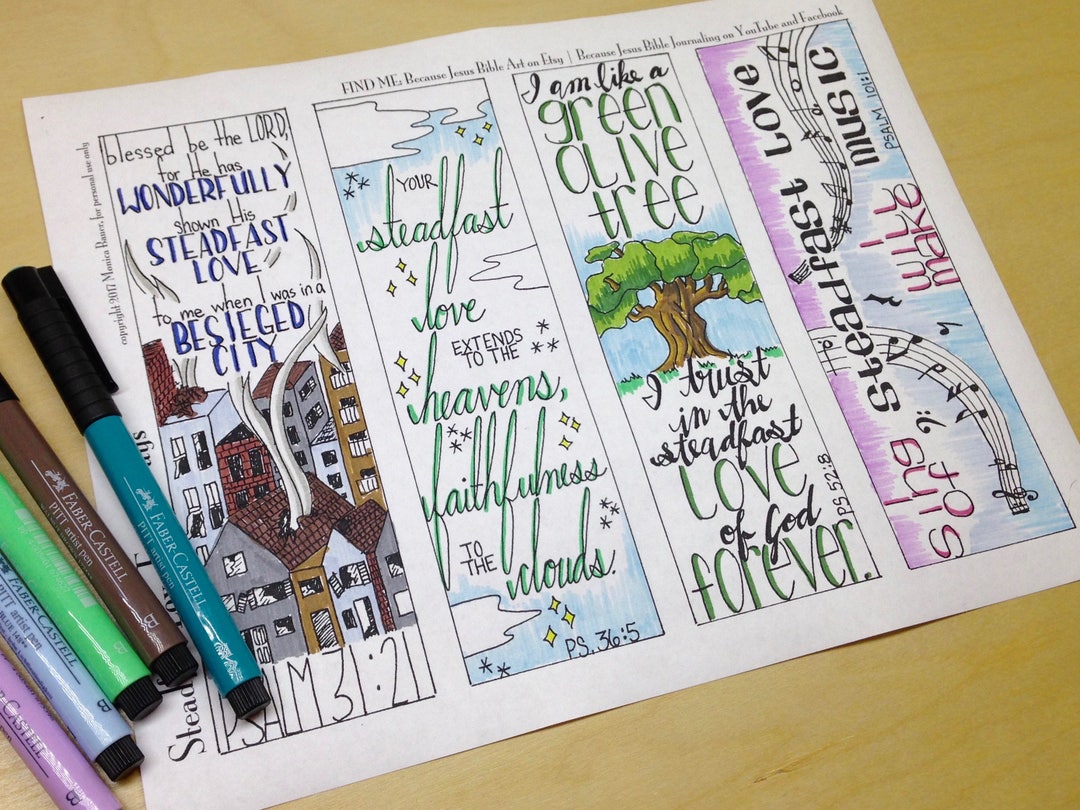 FIND ME: Because Jesus Bible Art on Etsy | Because Jesus Bible Journaling on YouTube and Facebook
copyright 2017 Monica Bauer, for personal use only
blessed be the LORD,
for He has
WONDERFULLY
shown His
STEADFAST
LOVE
to me when I was in a
BESIEGED
CITY
PSALM 31:21
YOUR
steadfast
love
EXTENDS
TO THE
heavens,
faithfulness
TO
THE
clouds.
PS. 36:5
I am like a
green
olive
tree
I trust
in the
steadfast
LOVE
of God
forever.
PS. 52:8
I sing
of
steadfast Love
I will
make
music
PSALM 101:1
FABER-CASTELL
PITT artist pen
B
FABER-CASTELL
PITT artist pen
B
B
FABER-CASTELL
PITT artist pen
B
B